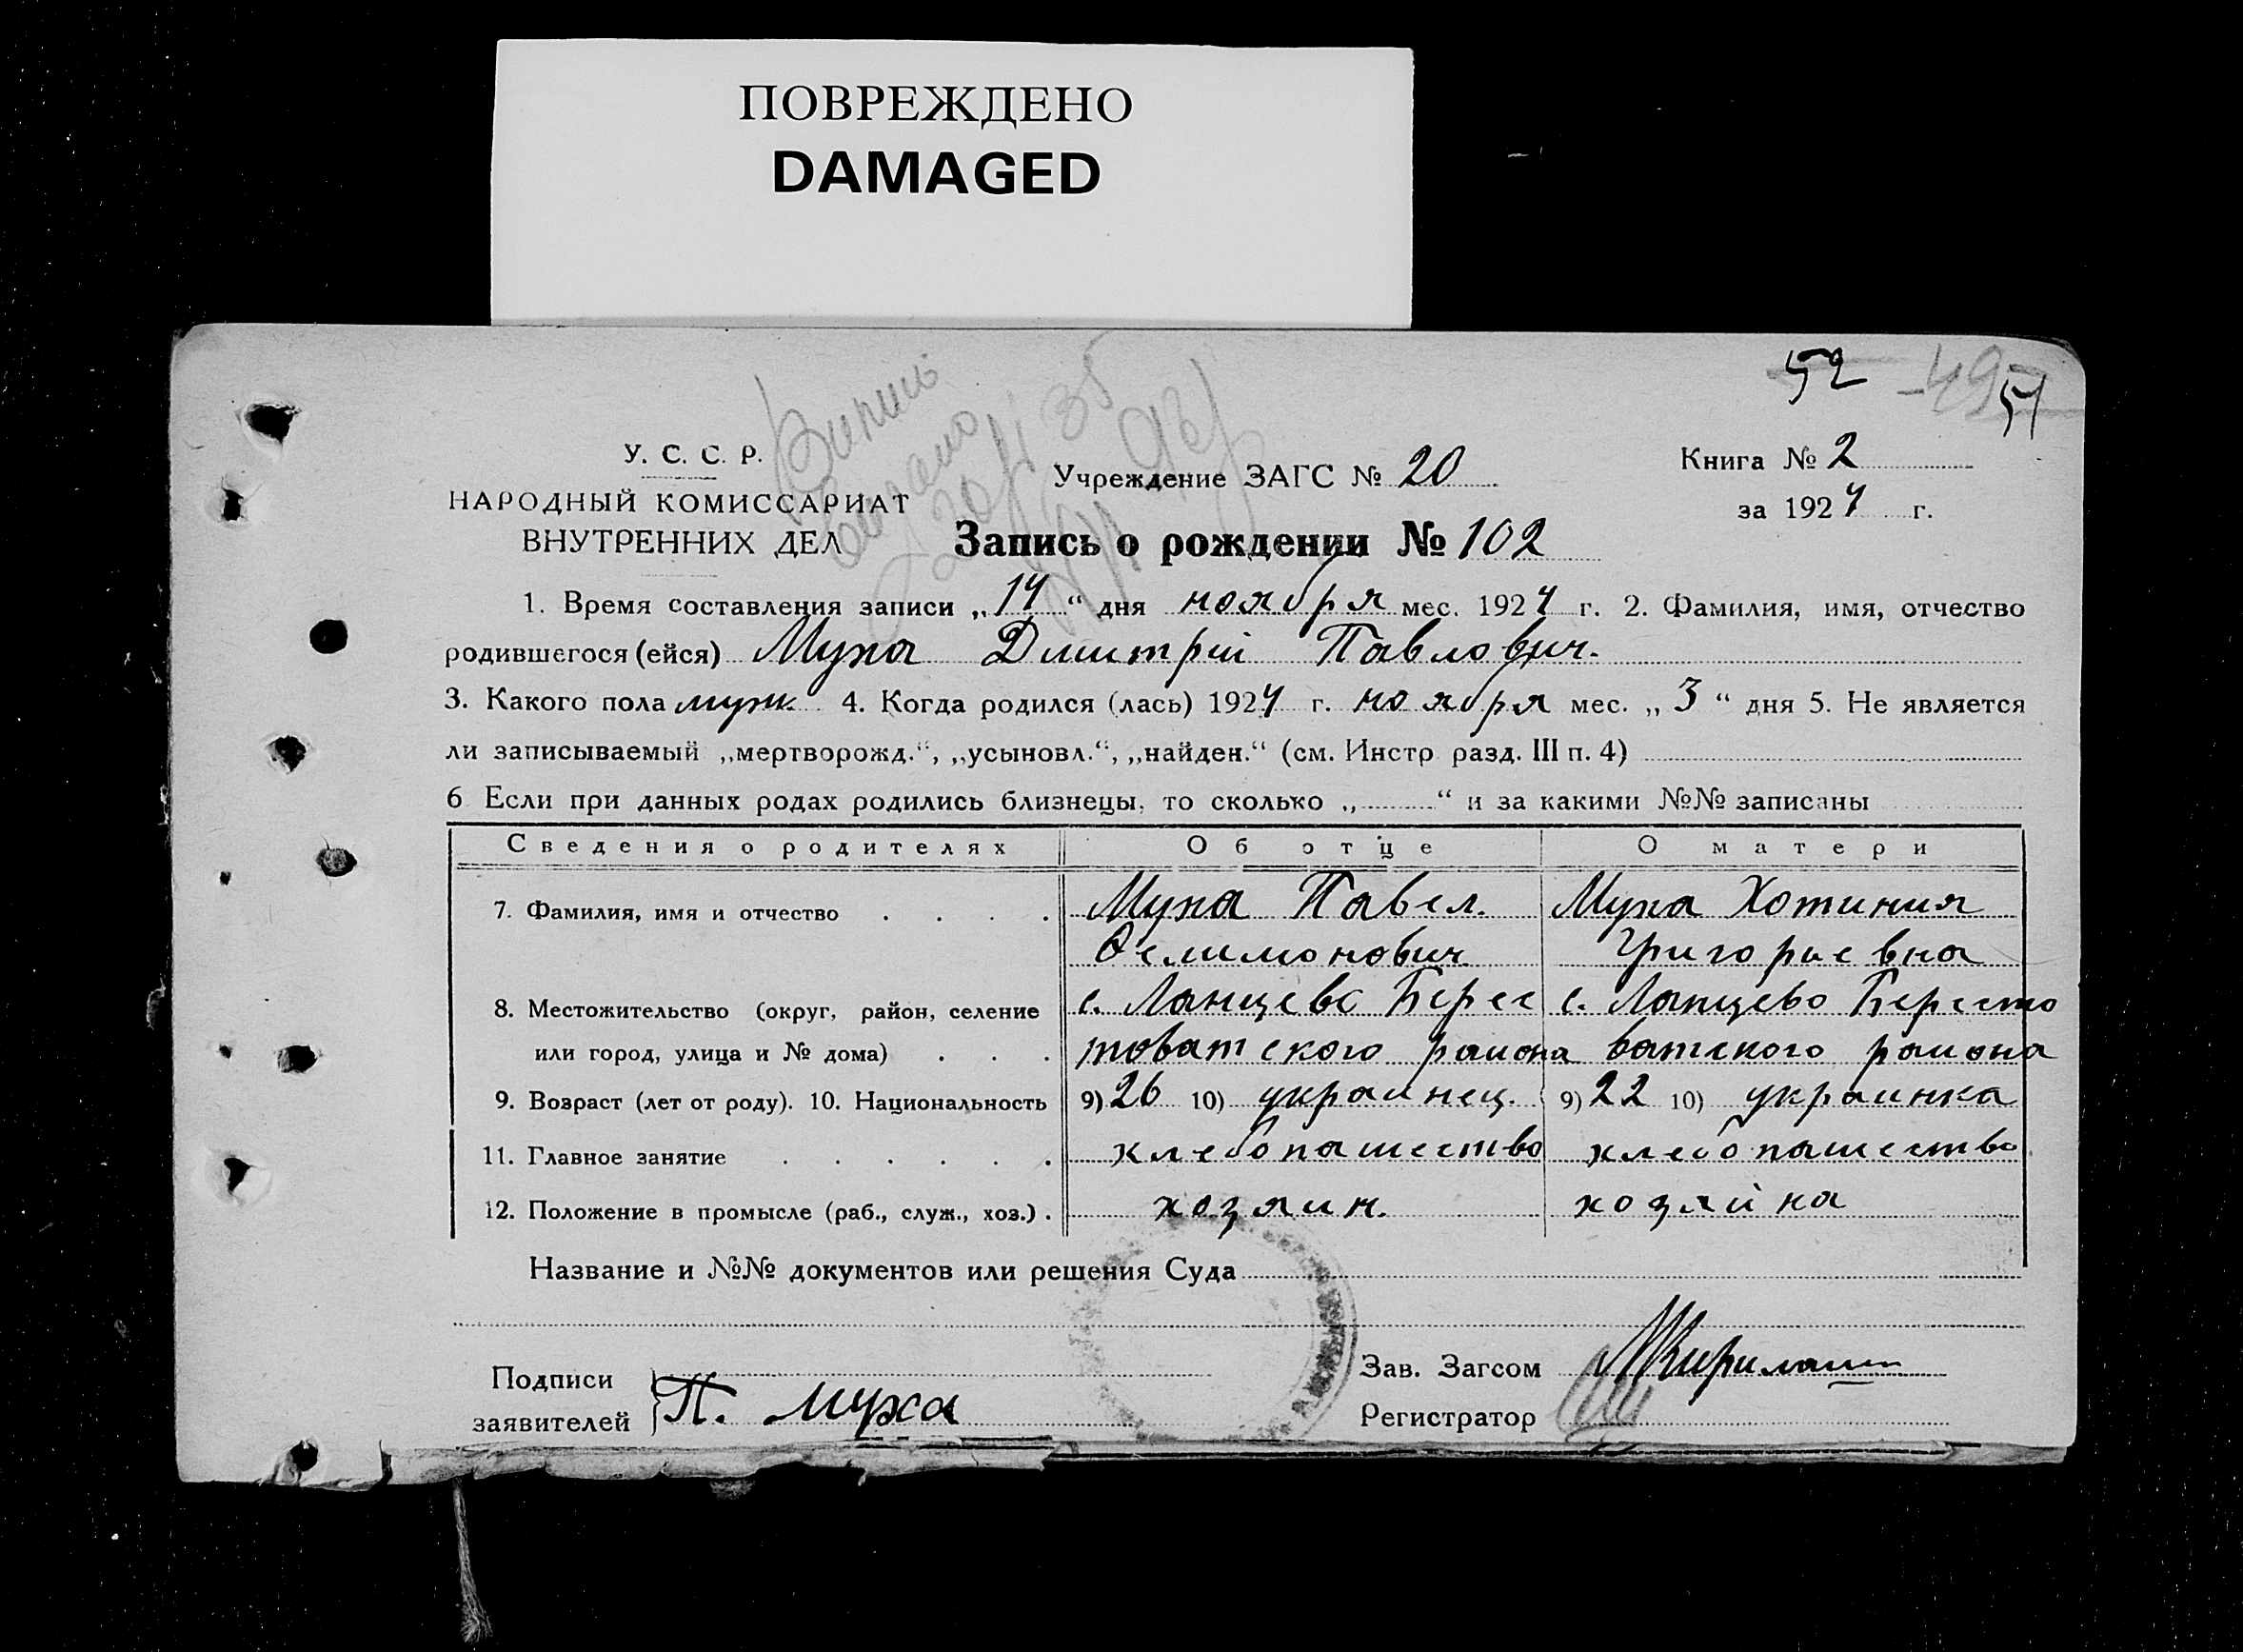 ПОВРЕЖДЕНО
DAMAGED
52 49 51
У. С. С. Р.
НАРОДНЫЙ КОМИССАРИАТ
ВНУТРЕННИХ ДЕЛ
Учреждение ЗАГС № 20
Книга № 2
за 1924 г.
Запись о рождении № 102
1. Время составления записи „14“ дня ноября мес. 1924 г. 2. Фамилия, имя, отчество
родившегося (ейся) Муха Дмитрій Павлович.
3. Какого пола муж. 4. Когда родился (лась) 1924 г. ноября мес. „3“ дня 5. Не является
ли записываемый „мертворожд.“, „усыновл.“, „найден.“ (см. Инстр. разд. III п. 4)
6 Если при данных родах родились близнецы, то сколько „ “ и за какими №№ записаны
Сведения о родителях Об отце О матери
7. Фамилия, имя и отчество . . . . Муха Павел. Муха Хотиния
Филимонович Григориевна
8. Местожительство (округ, район, селение с. Ланцево Берес с. Ланцево Бересто
или город, улица и № дома) . . . товатского района ватского района
9. Возраст (лет от роду). 10. Национальность 9) 26 10) украинец. 9) 22 10) украинка
11. Главное занятие . . . . . . хлебопашество хлебопашество
12. Положение в промысле (раб., служ., хоз.) . хозяин. хозяйка
Название и №№ документов или решения Суда
Подписи
заявителей
П. Муха
Зав. Загсом
Регистратор